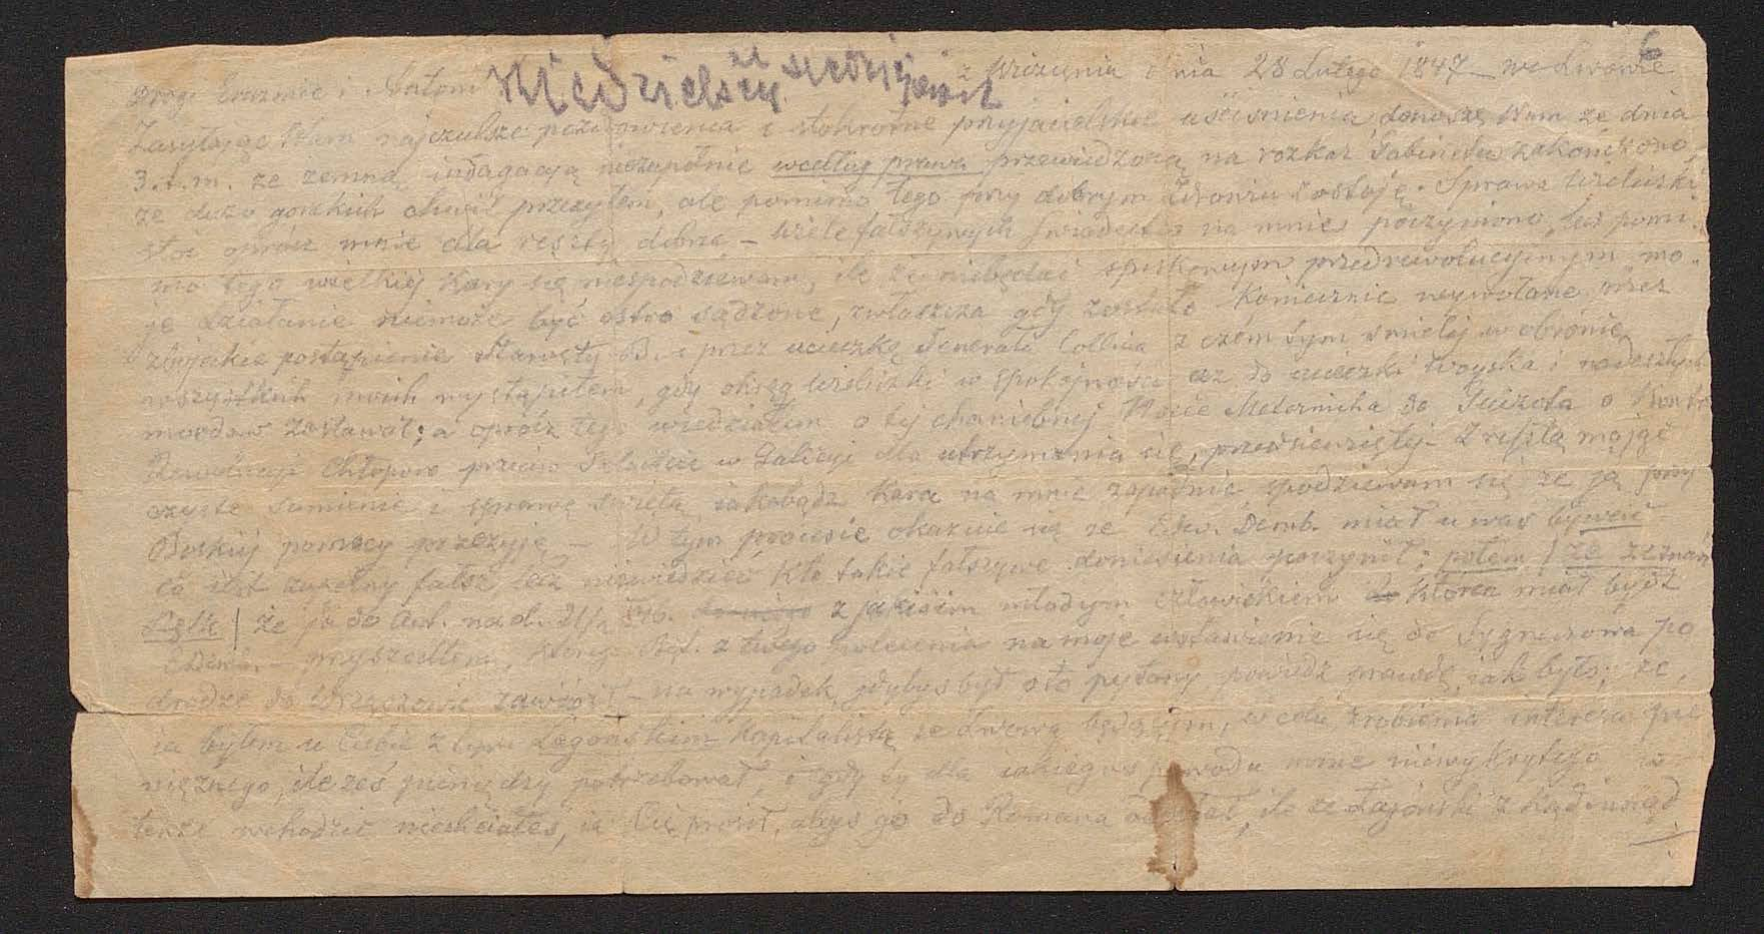 6
Niedzielscy ze Śledziejowic
Drogi Erazmie i z Więzienia dnia 28 Lutego 1847 we Lwowie
Zasyłając Wam najczulsze pozdrowienia i stokrotne przyjacielskie uściśnienia, donoszę Wam że dnia
3. t. m. ze zemną indagacyą niezupełnie według prawa przewiedzoną na rozkaz Gabinetu zakończono,
że dużo gorzkich chwil przeżyłem, ale pomimo tego przy dobrym zdrowiu zostaję. Sprawa Wieliczki
stoi oprócz mnie dla reszty dobrze – Wiele fałszywych świadectw na mnie poczyniono, lecz pomi-
mo tego wielkiej kary się niespodziewam, ile że niebędąc spiskowym przedrewolucyjnym mo-
je działanie niemoże być ostro sądzone, zwłaszcza gdy zostało koniecznie wywołane przez
zbójeckie postąpienie Starosty B. i przez ucieczkę Generała Collina z czém tym śmielej w obronie
wszystkich moich wystąpiłem, gdy okrąg Wieliczki w spokojności aż do ucieczki Woyska i
mordów zostawał; a oprócz tego wiedziałem o tej chaniebnej Nocie Meternicha do Guizota o
Rewolucyi chłopów przeciw Szlachcie w Galicyi dla utrzymania się, przedsięwziętej – Zresztą mając
czyste sumienie i sprawę świętą jakabądz kara na mnie zapadnie spodziewam się że ją przy
Boskiej pomocy przeżyję – W tym procesie okazuie się że Edw. Demb. miał u was bywać
co iest zupełny fałsz, lecz niewiedzieć kto takie fałszywe doniesienia poczynił; potem / ze zeznań
/ że ja do Ant. nad. 21/2 846. z jakiśim młodym człowiekiem który miał bydź
E. Demb. – przyszedłem, którego z twego polecenia na moje wstawienie się do po
drodze do zawiózł – na wypadek gdybyś był o to pytany powiedz prawdę jak było; że,
ia byłem u Ciebie z tym Łagońskim Kapitalistą ze Lwowa będącym, w celu zrobienia interesu pie
niężnego, ile żeś pieniędzy potrzebował, i gdy to dla iakiegoś powodu
wchodzić niechciałeś, ia Cię prosił, abyś go do Romana odesłał, ile że Łagoński z kądinąd